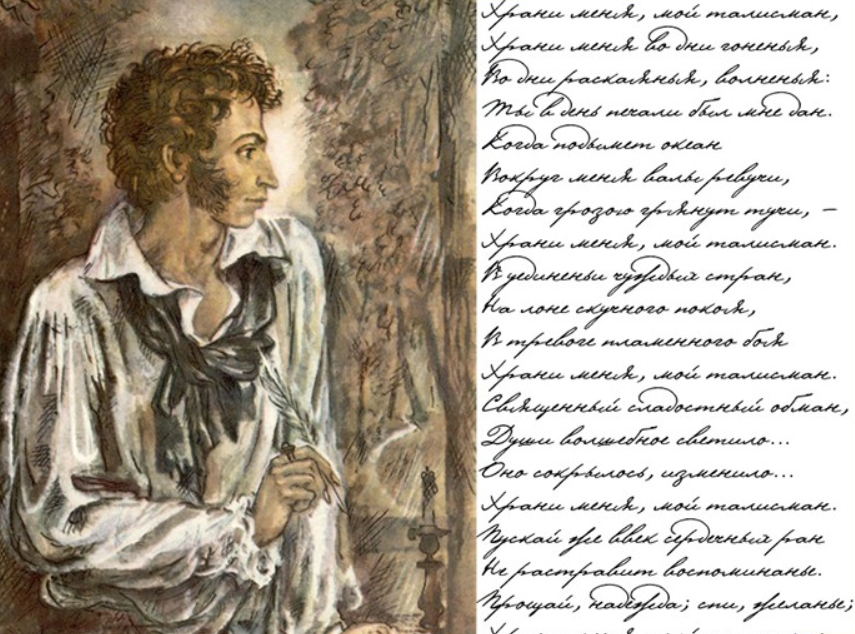 Храни меня, мой талисман,
Храни меня во дни гоненья,
Во дни раскаянья, волненья:
Ты в день печали был мне дан.
Когда подымет океан
Вокруг меня валы ревучи,
Когда грозою грянут тучи, –
Храни меня, мой талисман.
В уединеньи чуждых стран,
На лоне скучного покоя,
В тревоге пламенного боя
Храни меня, мой талисман.
Священный сладостный обман,
Души волшебное светило...
Оно сокрылось, изменило...
Храни меня, мой талисман.
Пускай же ввек сердечных ран
Не растравит воспоминанье.
Прощай, надежда; спи, желанье;